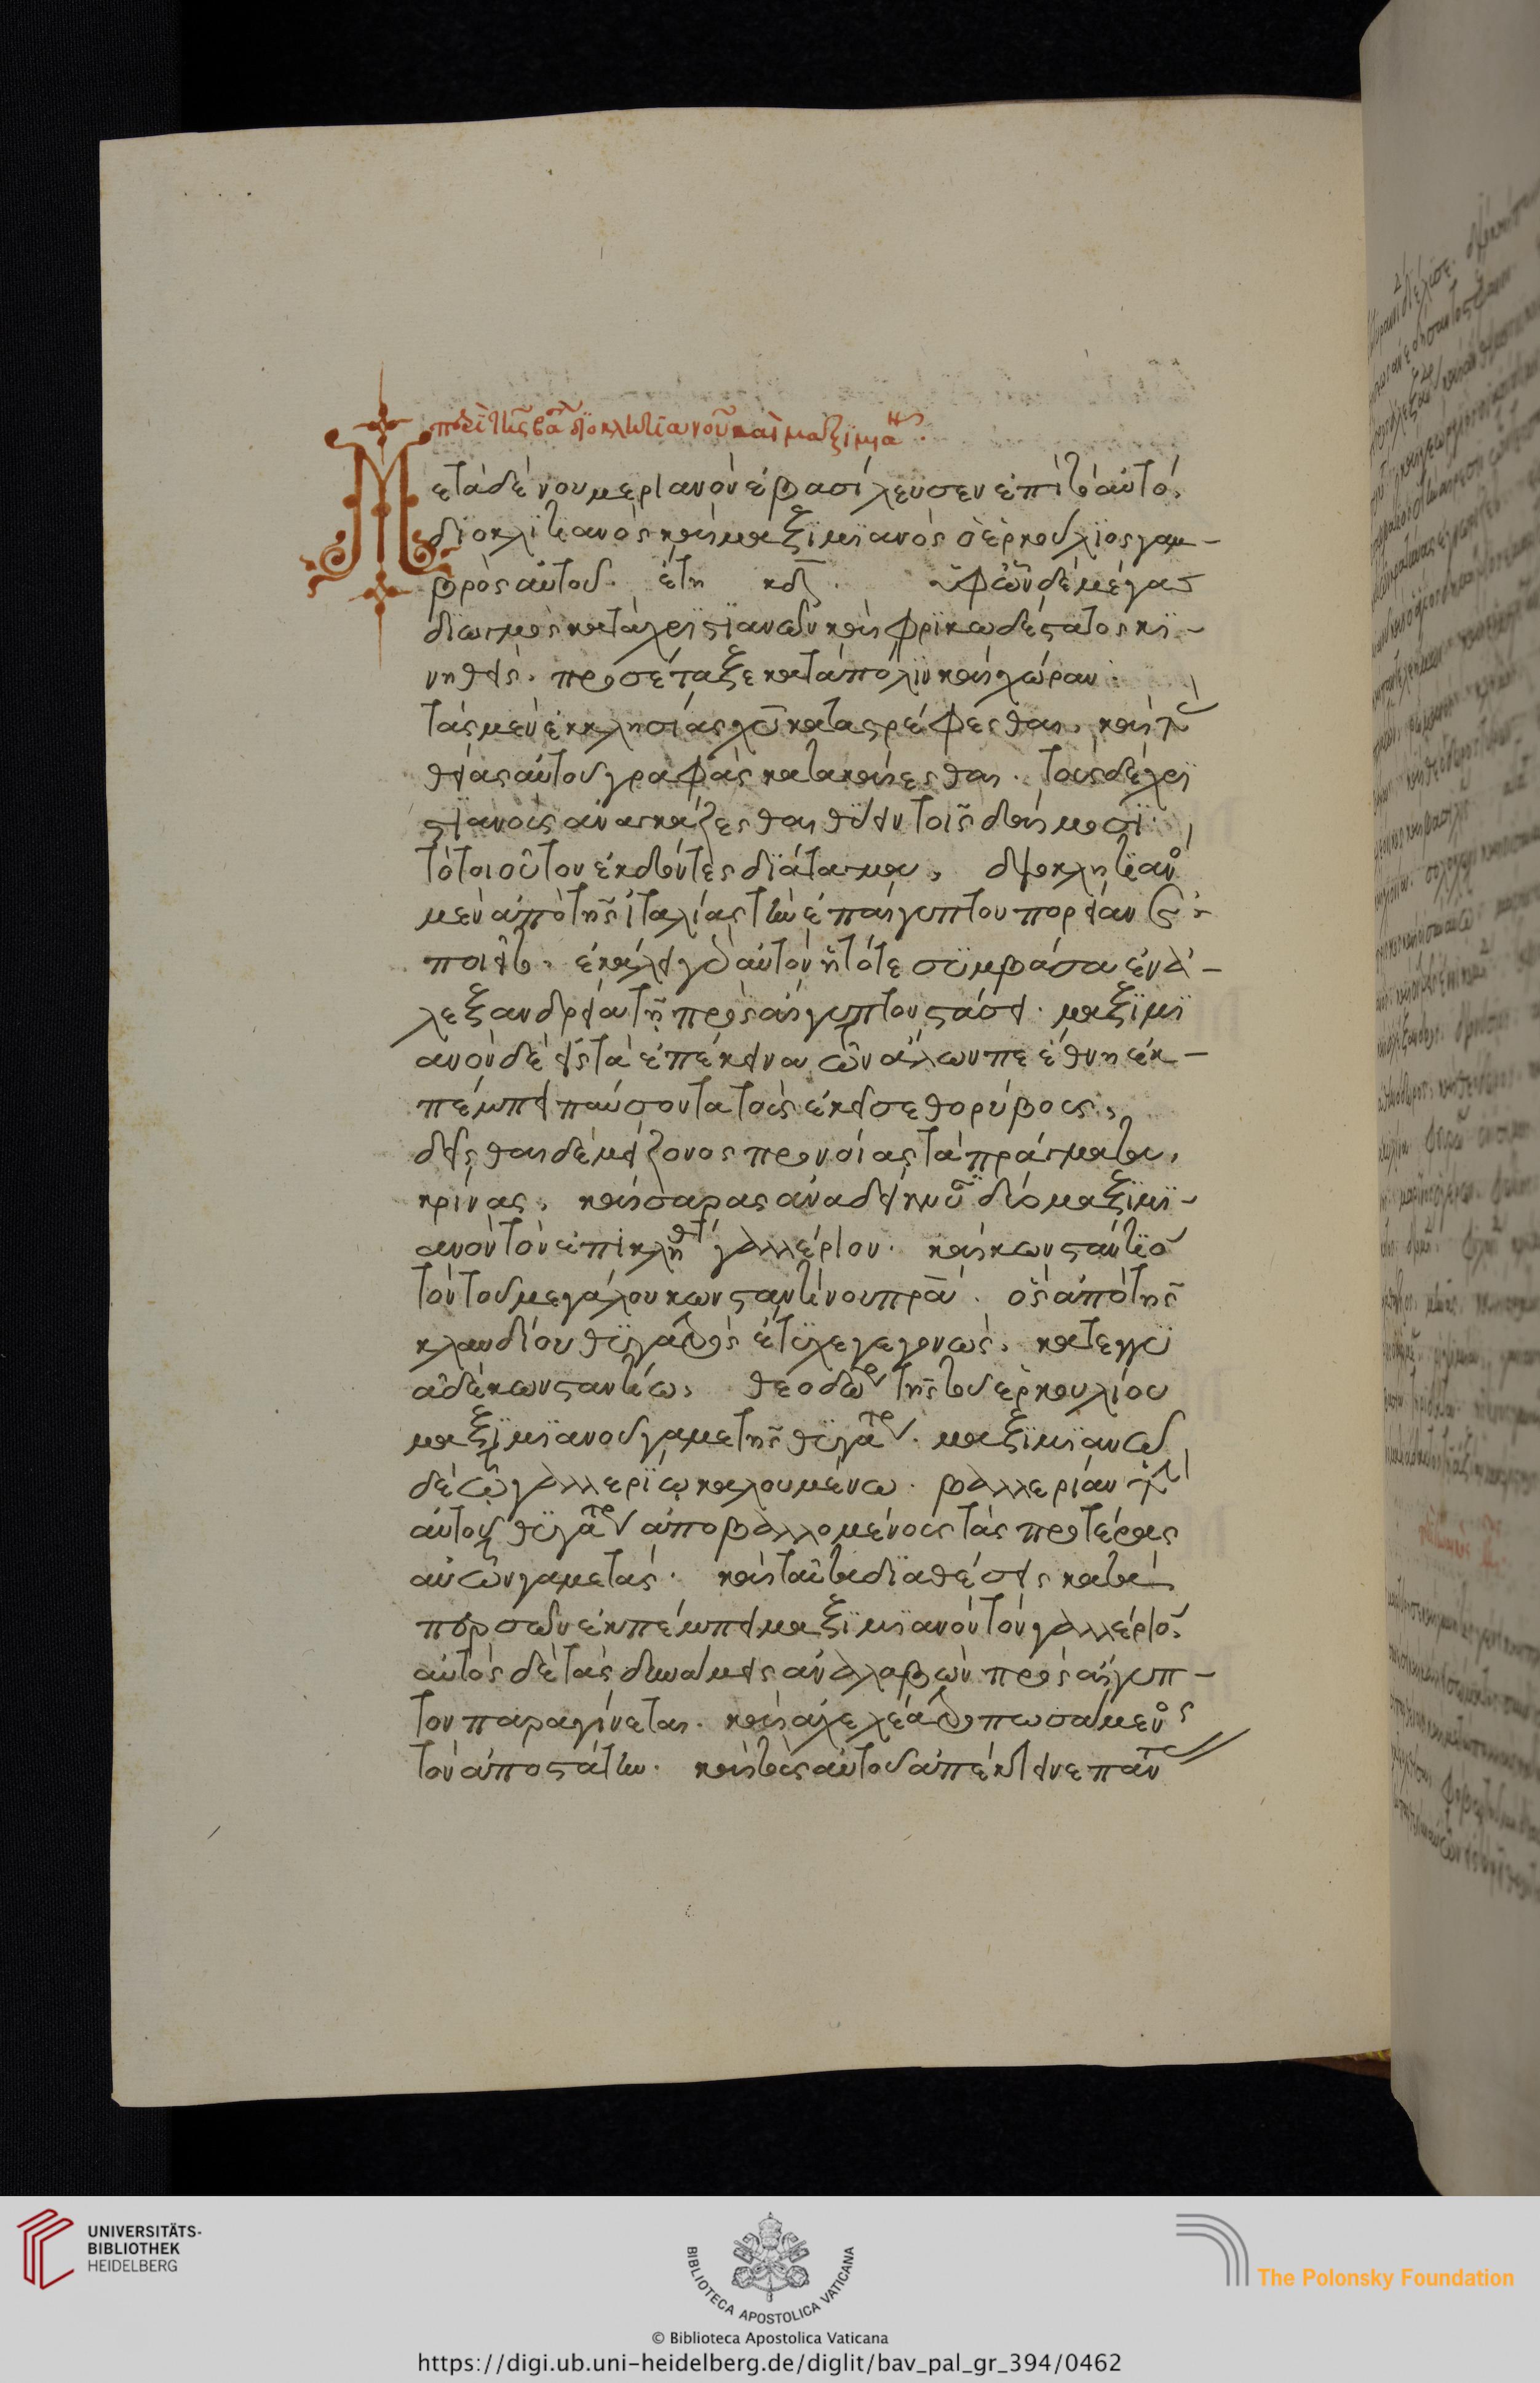 περὶ τῆς βα διοκλητιανοῦ καὶ μαξιμια
Μετὰ δὲ νουμεριανὸν ἐβασίλευσεν ἐπὶ τὸ αὐτό.
διοκλιτιανὸς καὶ μαξιμιανὸς ὁ ἑρκούλιος γαμ-
βρὸς αὐτοῦ. ἔτη κδ. ὑφ' ὧν δὲ μέγας
διωγμὸς κατὰ χριστιανῶν καὶ φρικωδέστατος κι-
νηθεὶς. προσέταξε κατὰ πόλιν καὶ χώραν
τὰς μὲν ἐκκλησίας χυ καταστρέφεσθαι. καὶ τὰς
θείας αὐτοῦ γραφὰς κατακαίεσθαι. τοὺς δὲ χρι
στιανοὺς ἀναγκάζεσθαι θύειν τοῖς δαίμοσι
τὸ τοιοῦτον ἐκδόντες διάταγμα, διοκλητιανὸς
μὲν ἀπὸ τῆς ἰταλίας τὴν ἐπ' αἴγυπτον πορείαν
ποιεῖται. ἐκάλει γὰρ αὐτὸν ἡ τότε συμβᾶσα ἐν ἀ-
λεξανδρεία τῇ πρὸς αἴγυπτον στάσει. μαξιμι
ανὸν δὲ εἰς τὰ ἐπέκεινα τῶν ἄλπεων ἔθνη ἐκ-
πέμπει παύσοντα τοὺς ἐκεῖσε θορύβους,
δεῖσθαι δὲ μείζονος προνοίας τὰ πράγματα,
κρίνας, καίσαρας ἀναδείκνυσι δύο μαξιμι-
ανὸν τὸν ἐπικληθέντα γαλλέριον. καὶ κωνστάντιον
τὸν τοῦ μεγάλου κωνσταντίνου πρα. ὃς ἀπὸ τῆς
κλαυδίου θυγατρὸς ἔτυχε γεγονὼς. κατεγγυ
ᾶ δὲ κωνσταντίω, θεοδώραν τῆς τοῦ ἑρκουλίου
μαξιμιανοῦ γαμετῆς θυγατέρα. μαξιμιανῶ
δὲ τῷ γαλλερίῳ καλουμένω. βαλλερίαν τὴν
αὐτοῦ θυγατέρα ἀποβαλλομένους τὰς προτέρας
αὐτῶν γαμετάς. καὶ ταῦτα διαθέσεις κατὰ
περσῶν ἐκπέμπει μαξιμιανὸν τὸν γαλλέριον.
αὐτὸς δὲ τὰς δυνάμεις ἀναλαβὼν πρὸς αἴγυπ-
τον παραγίνεται. καὶ ἀχελέα τροπωσάμενος
τὸν ἀποστάτην. καὶ τοὺς αὐτοῦ ἀπέκτεινε πάντας
UNIVERSITÄTS-
BIBLIOTHEK
HEIDELBERG
BIBLIOTECA APOSTOLICA VATICANA
The Polonsky Foundation
© Biblioteca Apostolica Vaticana
https://digi.ub.uni-heidelberg.de/diglit/bav_pal_gr_394/0462